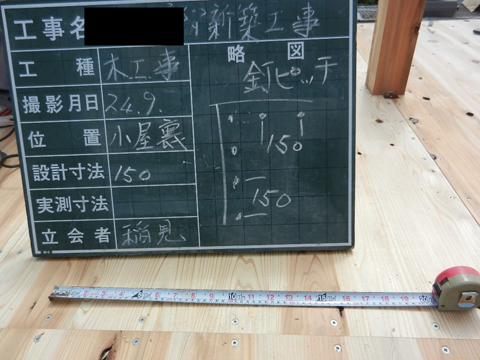 工事名 新築工事
工種 木工事
略図
釘ピッチ
撮影月日 24.9.
位置 小屋裏
150
設計寸法 150
実測寸法
150
立会者 稲見